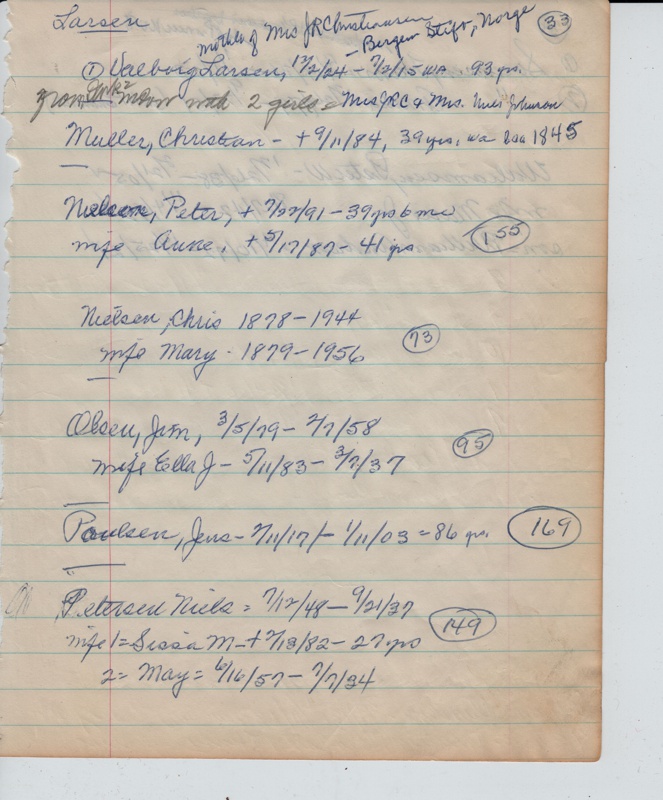 Larsen
mother of Mrs JR Christiansen
- Bergen Stift, Norge
33
① Valborg Larsen, 12/2/24 - 7/2/15 WA. 93 yrs.
widow with 2 girls = Mrs JRC & Mrs. Niels Johnson
Muller, Christian - + 9/11/84, 39 yrs, wa 1845
Nielsen, Peter, + 7/22/91 - 39 yrs 6 mo
wife Anne. + 5/17/87 - 41 yrs
155
Nielsen, Chris 1878 - 1944
wife Mary - 1879 - 1956
73
Olsen, Jim, 3/5/79 - 2/7/58
wife Ella J - 5/11/83 - 3/7/37
95
Poulsen, Jens - 2/11/17 - 1/11/03 = 86 yrs.
169
Petersen Niels = 7/12/48 - 9/21/37
wife 1 = Sissa M - + 7/13/82 - 27 yrs
2 = May = 6/16/57 - 7/7/34
149